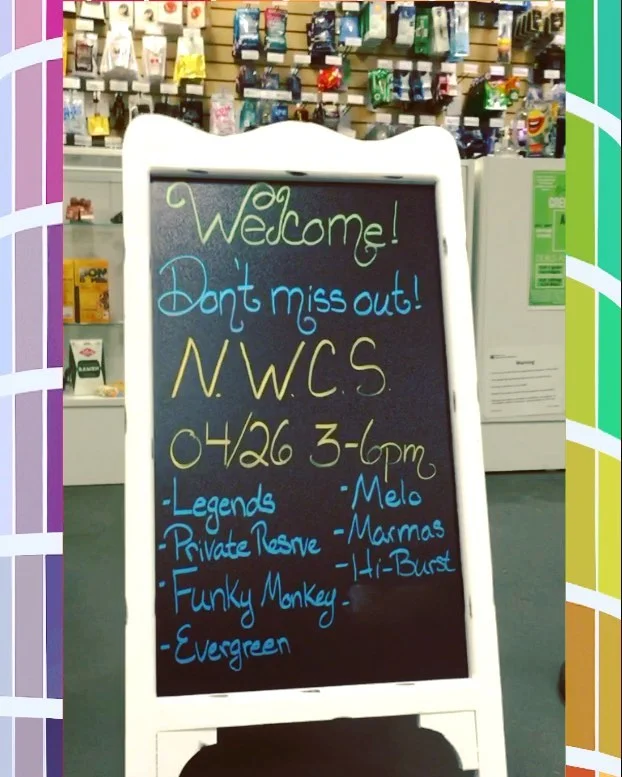 Welcome!
Don't miss out!
N.W.C.S.
04/26 3-6pm
-Legends
-Private Resrve
-Funky Monkey
-Evergreen
-Melo
-Marmas
-Hi-Burst
-
Warning